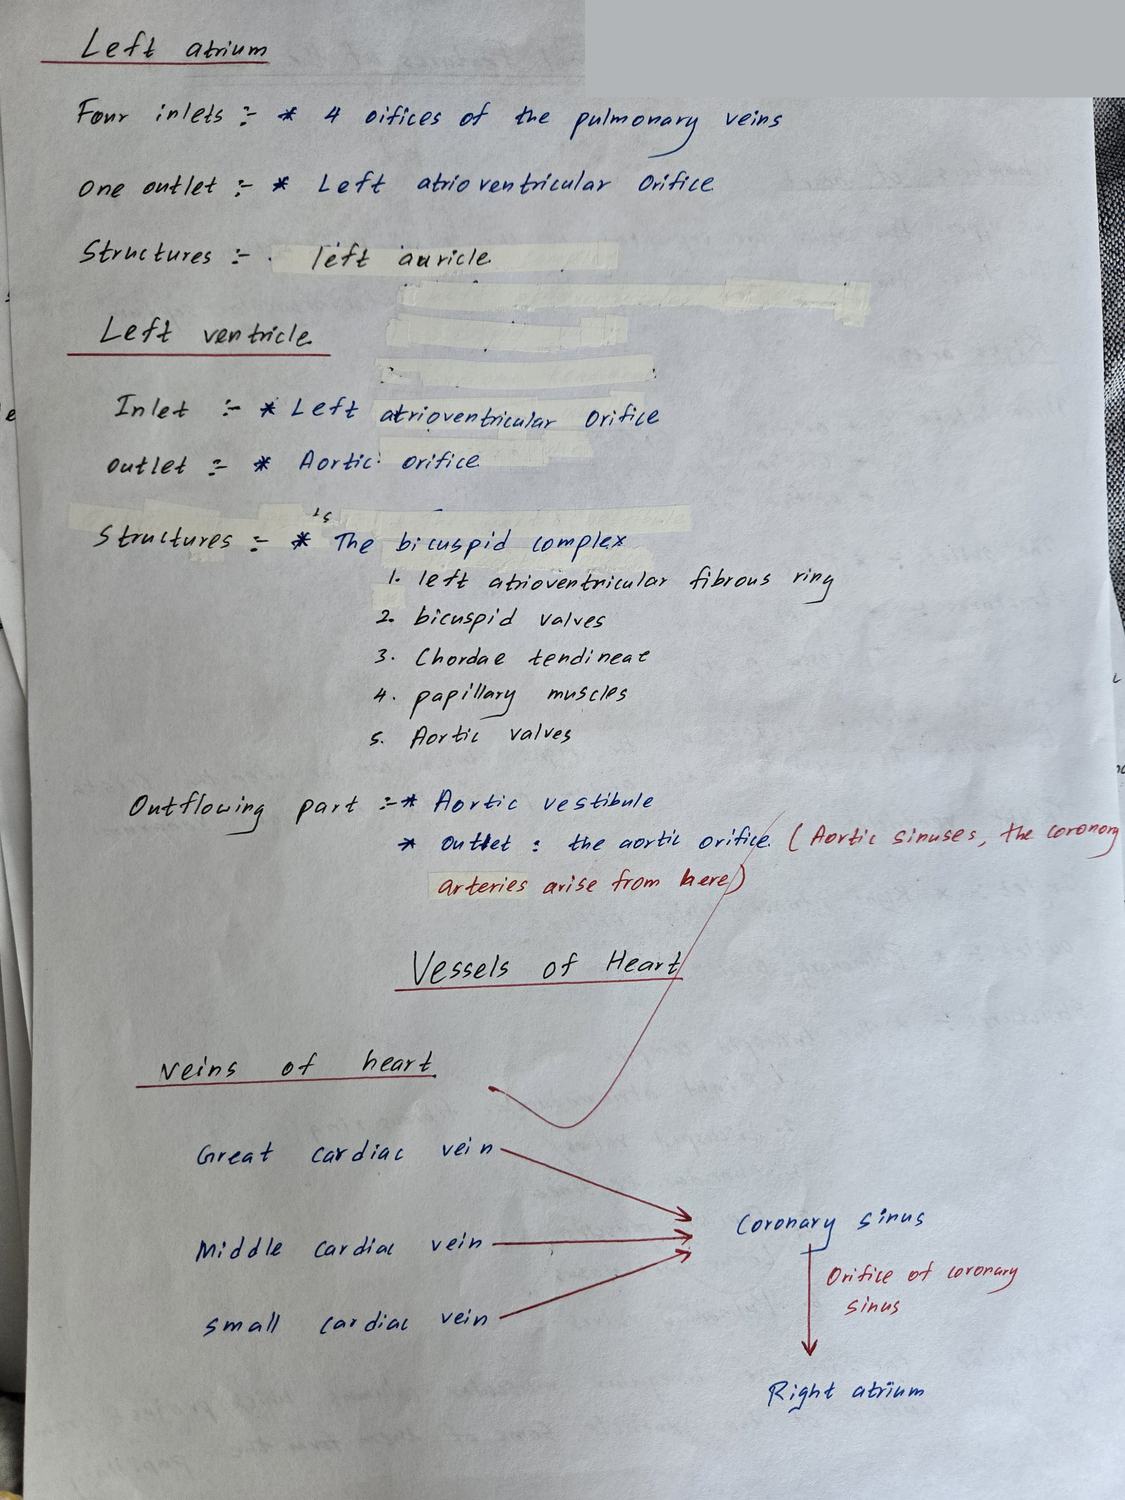 Left atrium
Four inlets :- * 4 oifices of the pulmonary veins
One outlet :- * Left atrioventricular Orifice
Structures :- left auricle
Left ventricle
Inlet :- * Left atrioventricular Orifice
outlet :- * Aortic orifice
Structures :- * The bicuspid complex
1. left atrioventricular fibrous ring
2. bicuspid valves
3. Chordae tendineae
4. papillary muscles
5. Aortic valves
Outflowing part :- * Aortic vestibule
* outlet : the aortic orifice. (Aortic sinuses, the coronary
arteries arise from here)
Vessels of Heart
veins of heart
Great cardiac vein
Coronary sinus
Middle cardiac vein
Orifice of coronary
sinus
small cardiac vein
Right atrium